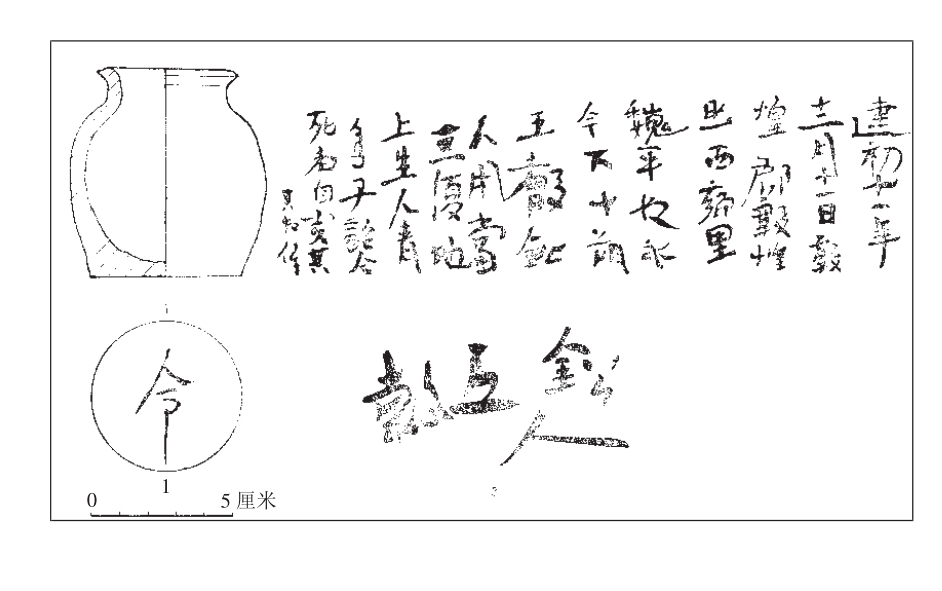 建初十一年
十二月廿一日敦
煌郡敦煌
西鄉里
魏平友
今下斗瓶
五穀鈆
人用當
重復地
上生人青
烏子詔令
死者自受其
令
鈆人
1
0 5 厘米